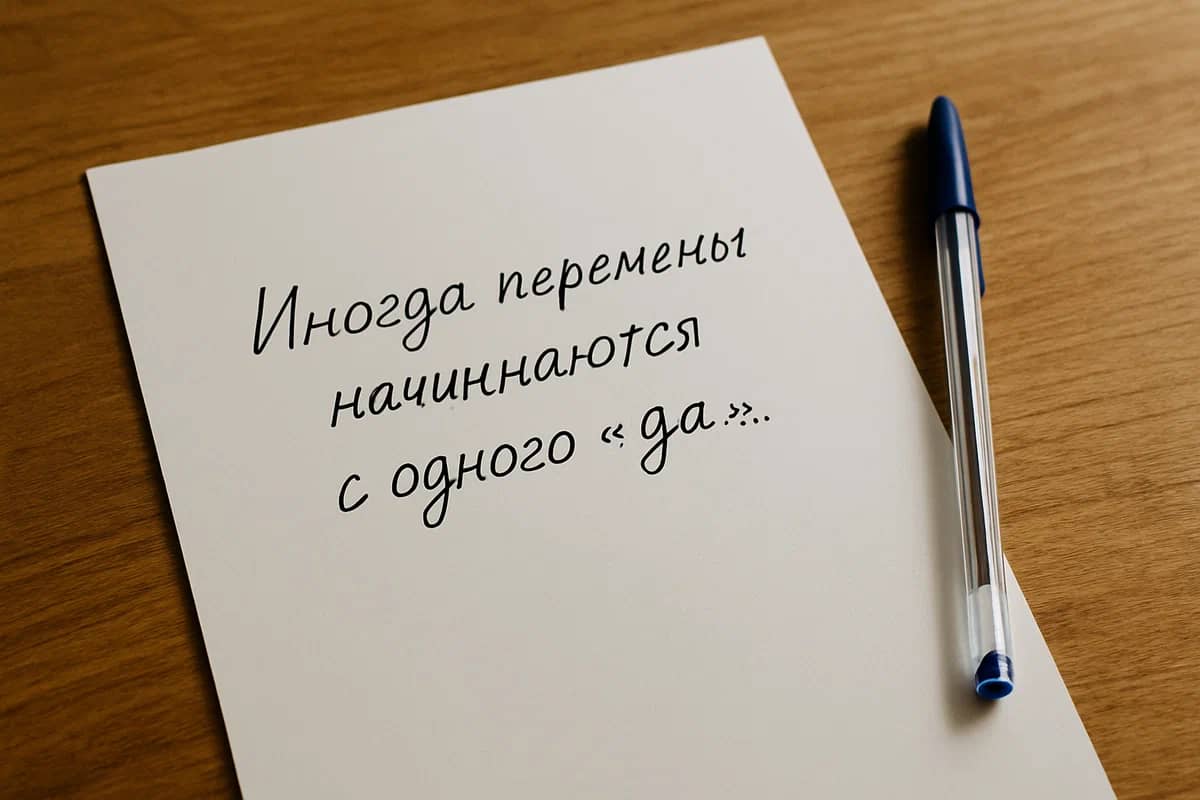 Иногда перемены
начиннаются
с одного «да»...